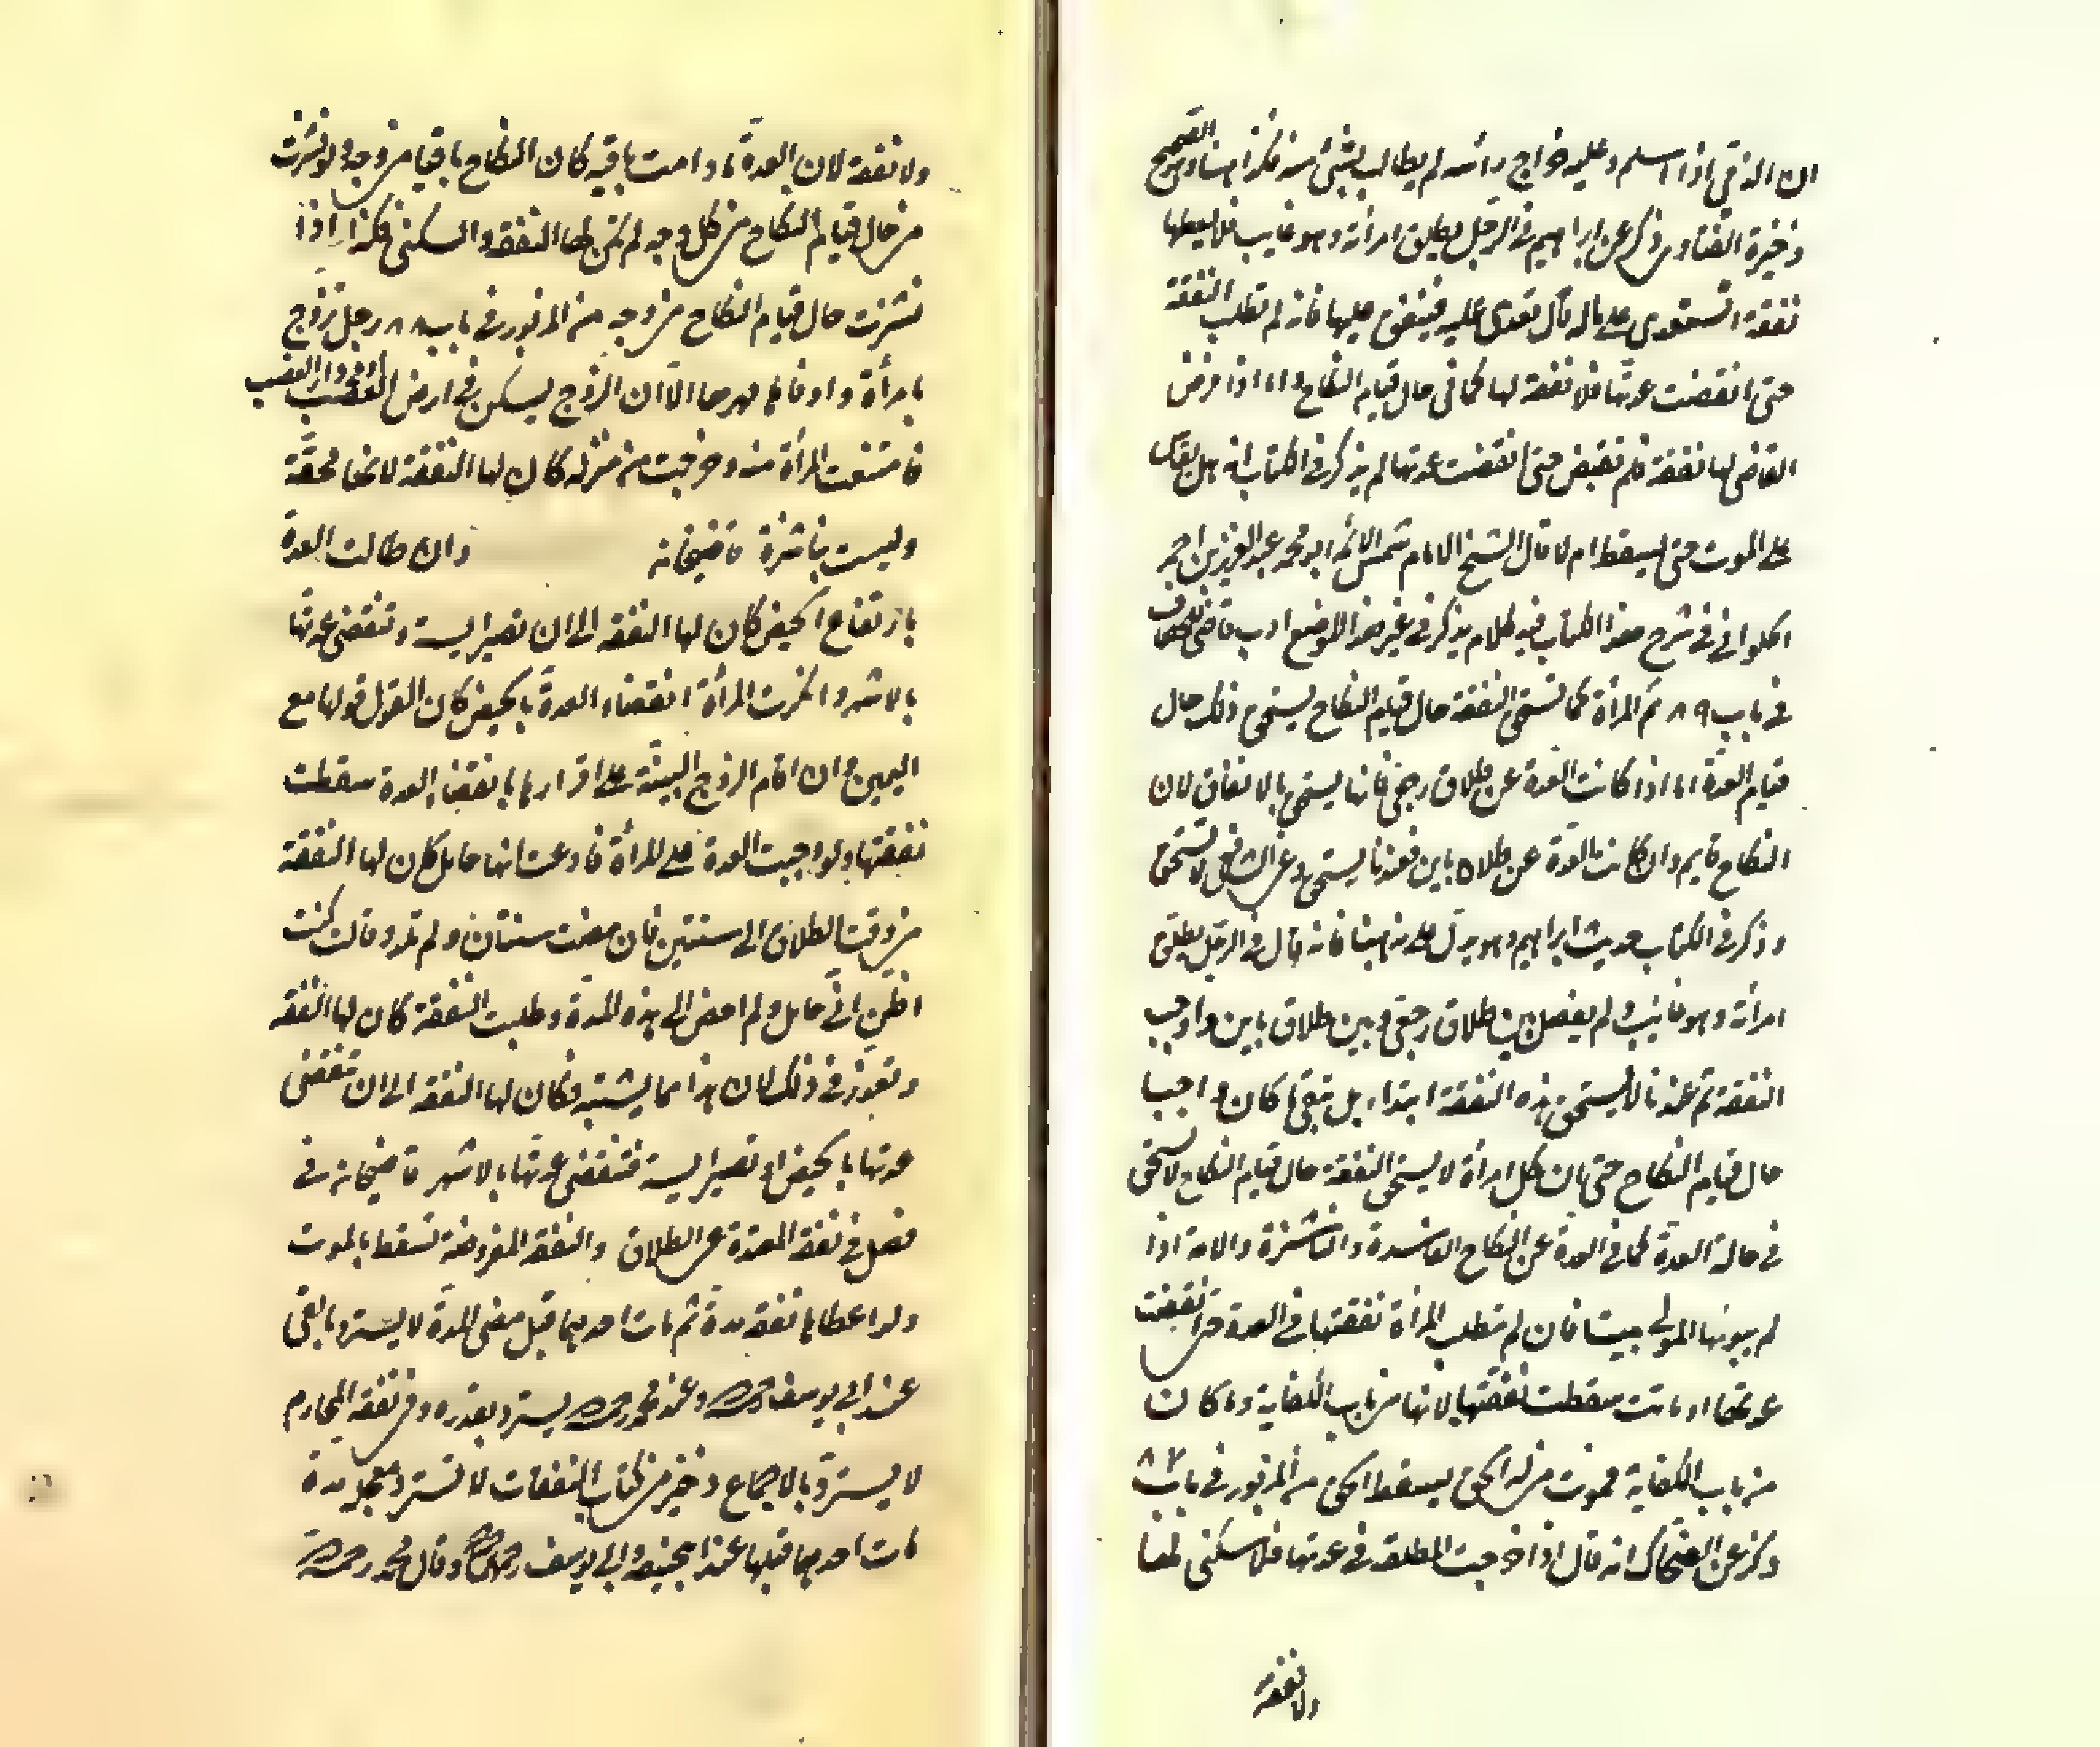 ان الذمي اذا اسلم وعليه خراج راسه لم يطالب بشئ منه فكذا هنا وهو الصحيح
ذخيرة الفتاوى وذكر عن ابراهيم في الرجل يطلق امرأته وهو غايب فلا يعلمها
نفقة استعدى على ماله قال تعدى عليه فينفق عليها فانه لم تطلب النفقة
حتى انقضت عدتها فلا نفقة لها كما في حال قيام النكاح واما اذا فرض
القاضي لها نفقة فلم تقبض حتى انقضت عدتها لم يذكر في الكتاب انه هل يقاس
على الموت حتى يسقط ام لا قال الشيخ الامام شمس الائمه ابو محمد عبد العزيز بن احمد
الحلواني في شرح هذا الكتاب فيه كلام يذكر في غير هذا الموضع ادب قاضي للخصاف
في باب ٨٩ ثم المرأة كما تستحق النفقة حال قيام النكاح يستحق ذلك حال
قيام العدة اما اذا كانت العدة عن طلاق رجعي فانها يستحق بالاتفاق لان
النكاح قايم وان كانت العدة عن طلاق باين فعندنا يستحق وعن الشافعي لا تستحق
وذكر في الكتاب حديث ابراهيم وهو يدل على مذهبنا فانه قال في الرجل يطلق
امرأته وهو غايب ولم يفصل بين طلاق رجعي وبين طلاق باين واوجب
النفقة ثم عندنا لا يستحق هذه النفقة ابتداء بل تبقى ما كان واجبا
حال قيام النكاح حتى ان كل امرأة لا يستحق النفقة حال قيام النكاح لا تستحق
في حالة العدة كما في العدة عن النكاح الفاسدة والناشزة والامة اذا
لم يبوئها المولى بيتا فان لم تطلب المرأة نفقتها في العدة حتى انقضت
عدتها او ماتت سقطت نفقتها لانها من باب الكفاية وما كان
من باب الكفاية فموت من له الحق يسقط الحق من المزبور في باب ٨٧
ذكر عن الضحاك انه قال اذا خرجت المطلقه في عدتها فلا سكنى لها
ولا نفقة
ولا نفقة لان العدة ما دامت باقيه كان النكاح باقيا من وجه ولو نشزت
من حال قيام النكاح من كل وجه لم تكن لها النفقة والسكنى فكذا اذا
نشزت حال قيام النكاح من وجه من المزبور في باب ٨٨ رجل تزوج
بامرأة واوفاها مهرها الا ان الزوج يسكن في ارض الغصب او في دار الغصب
فامتنعت المرأة منه وخرجت من منزله كان لها النفقة لانها محقة
وليست بناشزة قاضيخانه وان طالت العدة
بارتفاع الحيض كان لها النفقه الى ان تصير ايسة وتنقضي عدتها
بالاشهر وانكرت المرأة انقضاء العدة بالحيض كان القول قولها مع
اليمين وان اقام الزوج البينة على اقرارها بانقضاء العدة سقطت
نفقتها ولو وجبت العدة على المرأة فادعت انها حامل كان لها النفقة
من وقت الطلاق الى سنتين فان مضت سنتان ولم تلد وقالت كنت
اظن اني حامل ولم احض الى هذه المدة وطلبت النفقة كان لها النفقه
وتعذر في ذلك لان هذا مما يشتبه فكان لها النفقه الى ان تنقضي
عدتها بالحيض او تصير ايسة فتنقضي عدتها بالاشهر قاضيخانه في
فصل في نفقة المعتدة عن الطلاق والنفقه المفروضة تسقط بالموت
ولو اعطاها نفقة مدة ثم مات احدهما قبل مضي المدة لا يسترد ما بقى
عند ابي يوسف رحمه الله وعند محمد رحمه الله يسترد بقدره وفي نفقة المحارم
لا يسترد بالاجماع ذخيرة من كتاب النفقات لا تسترد معجلة مدة
مات احدهما قبلها عند ابيحنيفه وابي يوسف رحمهما الله وقال محمد رحمه الله